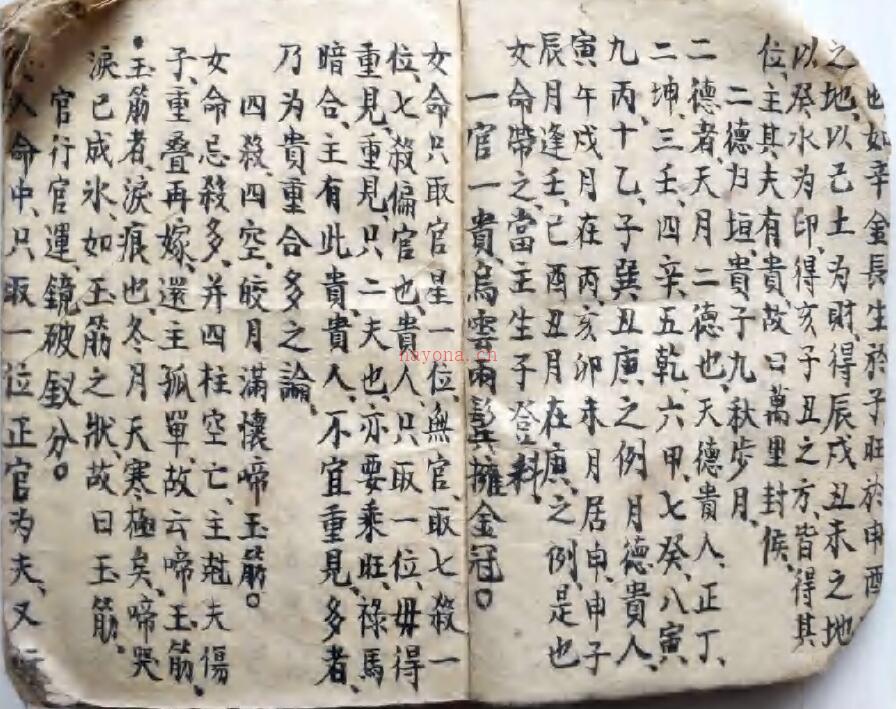 也如辛金長生於子旺於申酉
之地、以己土為財、得辰戌丑未之地
以癸水为印、得亥子丑之方、皆得其
位、主其夫有貴、故曰萬里封候、
二德归垣、貴子九秋步月、
二德者、天月二德也、天德貴人、正丁、
二坤、三壬、四辛、五乾、六甲、七癸、八寅、
九丙、十乙、子巽丑庚、之例月德貴人、
寅午戌月在丙、亥卯未月居甲、申子
辰月逢壬、巳酉丑月在庚、之例、是也
女命帶之、當主生子登科、
一官一貴、烏雲両鬂擁金冠。
女命只取官星一位、無官、取七殺一
位、七殺偏官也、貴人只取一位、毋得
重見、重見、只二夫也、亦要乘旺、禄馬
暗合、主有此貴、貴人、不宜重見、多者、
乃为貴重合多之論、
四殺、四空、皎月滿懷啼玉筋。
女命忌殺多、并四柱空亡、主尅夫傷
子、重叠再嫁、還主孤單、故云啼玉筋、
玉筋者、淚痕也、冬月天寒極矣、啼哭
淚已成氷、如玉筋之狀、故曰玉筋、
官行官運、鏡破釵分。
人命中、只取一位正官为夫、又行
nayona.cn